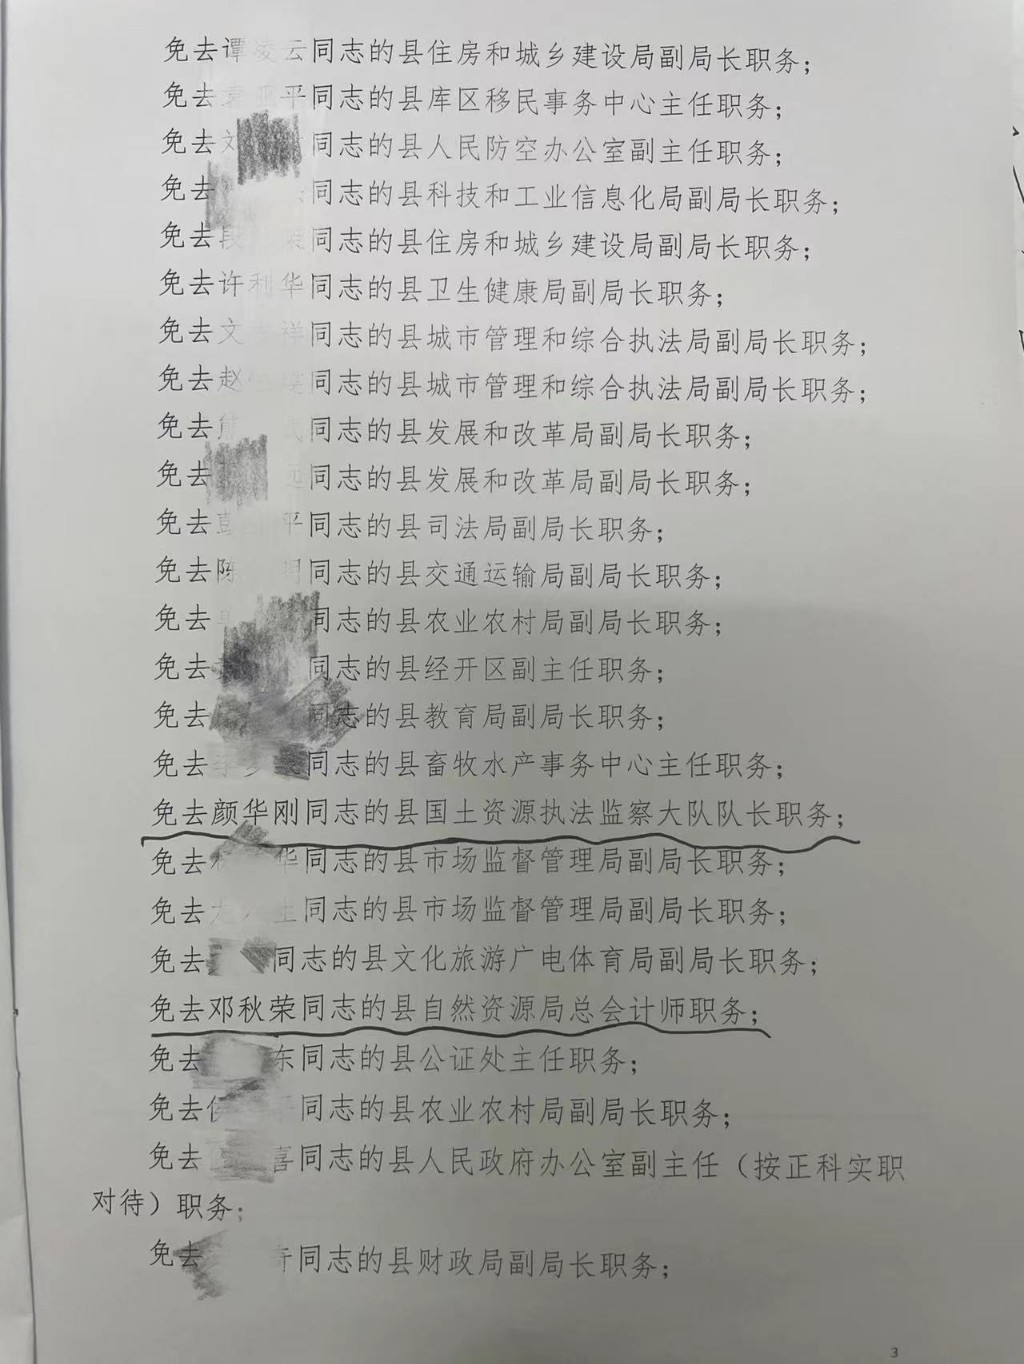 免去谭凌云同志的县住房和城乡建设局副局长职务；
免去 平同志的县库区移民事务中心主任职务；
免去 同志的县人民防空办公室副主任职务；
免去 同志的县科技和工业信息化局副局长职务；
免去段 荣同志的县住房和城乡建设局副局长职务；
免去许利华同志的县卫生健康局副局长职务；
免去文 祥同志的县城市管理和综合执法局副局长职务；
免去赵 同志的县城市管理和综合执法局副局长职务；
免去熊 同志的县发展和改革局副局长职务；
免去 远同志的县发展和改革局副局长职务；
免去彭 平同志的县司法局副局长职务；
免去陈 明同志的县交通运输局副局长职务；
免去 同志的县农业农村局副局长职务；
免去 同志的县经开区副主任职务；
免去 同志的县教育局副局长职务；
免去李 同志的县畜牧水产事务中心主任职务；
免去颜华刚同志的县国土资源执法监察大队队长职务；
免去 华同志的县市场监督管理局副局长职务；
免去 生同志的县市场监督管理局副局长职务；
免去 同志的县文化旅游广电体育局副局长职务；
免去邓秋荣同志的县自然资源局总会计师职务；
免去 东同志的县公证处主任职务；
免去 同志的县农业农村局副局长职务；
免去 喜同志的县人民政府办公室副主任（按正科实职
对待）职务；
免去 奇同志的县财政局副局长职务；
3